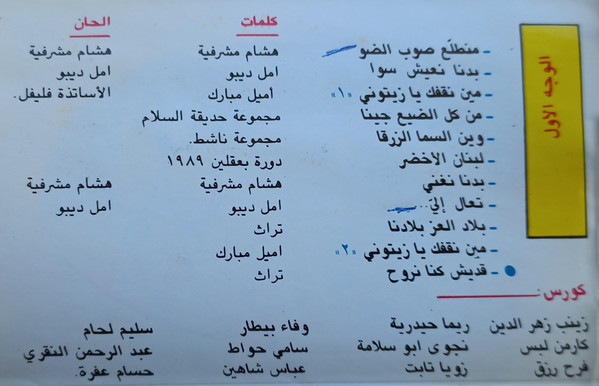 كلمات الحان
الوجه الاول
- منطلّع صوب الضو هشام مشرفية هشام مشرفية
- بدنا نعيش سوا امل ديبو امل ديبو
- مين نقفك يا زيتوني «١» أميل مبارك الأساتذة فليفل.
- من كل الضيع جينا مجموعة حديقة السلام
- وين السما الزرقا مجموعة ناشط.
- لبنان الاخضر دورة بعقلين ١٩٨٩
- بدنا نغني هشام مشرفية هشام مشرفية
- تعال إليّ.. امل ديبو امل ديبو
- بلاد العز بلادنا تراث
- مين نقفك يا زيتوني «٢» اميل مبارك
- قديش كنا نروح تراث
كورس
زينب زهر الدين ريما حيدرية وفاء بيطار سليم لحام
كارمن لبس نجوى ابو سلامة سامي حواط عبد الرحمن النقري
فرح رزق زويا تابت عباس شاهين حسام عفرة.